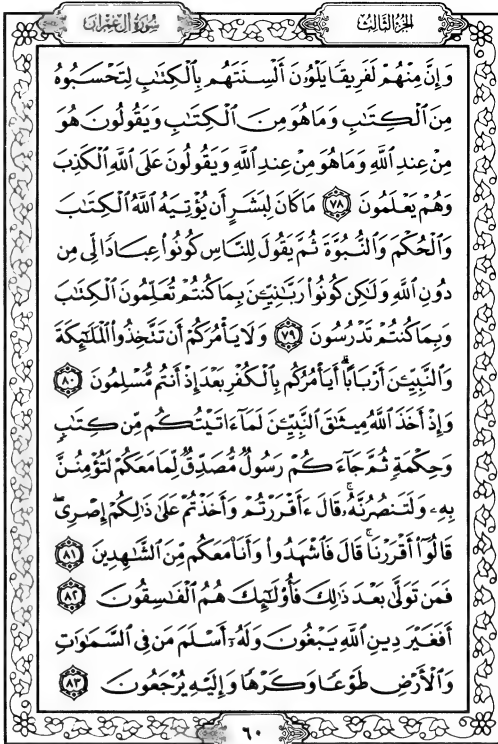 سُورَةُ آلِ عِمْرَان
الجُزْءُ الثَّالِث
وَإِنَّ مِنْهُمْ لَفَرِيقًا يَلْوُۥنَ أَلْسِنَتَهُم بِٱلْكِتَٰبِ لِتَحْسَبُوهُ
مِنَ ٱلْكِتَٰبِ وَمَا هُوَ مِنَ ٱلْكِتَٰبِ وَيَقُولُونَ هُوَ
مِنْ عِندِ ٱللَّهِ وَمَا هُوَ مِنْ عِندِ ٱللَّهِ وَيَقُولُونَ عَلَى ٱللَّهِ ٱلْكَذِبَ
وَهُمْ يَعْلَمُونَ ٧٨ مَا كَانَ لِبَشَرٍ أَن يُؤْتِيَهُ ٱللَّهُ ٱلْكِتَٰبَ
وَٱلْحُكْمَ وَٱلنُّبُوَّةَ ثُمَّ يَقُولَ لِلنَّاسِ كُونُوا۟ عِبَادًا لِّى مِن
دُونِ ٱللَّهِ وَلَٰكِن كُونُوا۟ رَبَّٰنِيِّۦنَ بِمَا كُنتُمْ تُعَلِّمُونَ ٱلْكِتَٰبَ
وَبِمَا كُنتُمْ تَدْرُسُونَ ٧٩ وَلَا يَأْمُرَكُمْ أَن تَتَّخِذُوا۟ ٱلْمَلَٰٓئِكَةَ
وَٱلنَّبِيِّۦنَ أَرْبَابًا ۗ أَيَأْمُرُكُم بِٱلْكُفْرِ بَعْدَ إِذْ أَنتُم مُّسْلِمُونَ ٨٠
وَإِذْ أَخَذَ ٱللَّهُ مِيثَٰقَ ٱلنَّبِيِّۦنَ لَمَآ ءَاتَيْتُكُم مِّن كِتَٰبٍ
وَحِكْمَةٍ ثُمَّ جَآءَكُمْ رَسُولٌ مُّصَدِّقٌ لِّمَا مَعَكُمْ لَتُؤْمِنُنَّ
بِهِۦ وَلَتَنصُرُنَّهُۥ ۚ قَالَ ءَأَقْرَرْتُمْ وَأَخَذْتُمْ عَلَىٰ ذَٰلِكُمْ إِصْرِى ۖ
قَالُوٓا۟ أَقْرَرْنَا ۚ قَالَ فَٱشْهَدُوا۟ وَأَنَا۠ مَعَكُم مِّنَ ٱلشَّٰهِدِينَ ٨١
فَمَن تَوَلَّىٰ بَعْدَ ذَٰلِكَ فَأُو۟لَٰٓئِكَ هُمُ ٱلْفَٰسِقُونَ ٨٢
أَفَغَيْرَ دِينِ ٱللَّهِ يَبْغُونَ وَلَهُۥٓ أَسْلَمَ مَن فِى ٱلسَّمَٰوَٰتِ
وَٱلْأَرْضِ طَوْعًا وَكَرْهًا وَإِلَيْهِ يُرْجَعُونَ ٨٣
٦٠